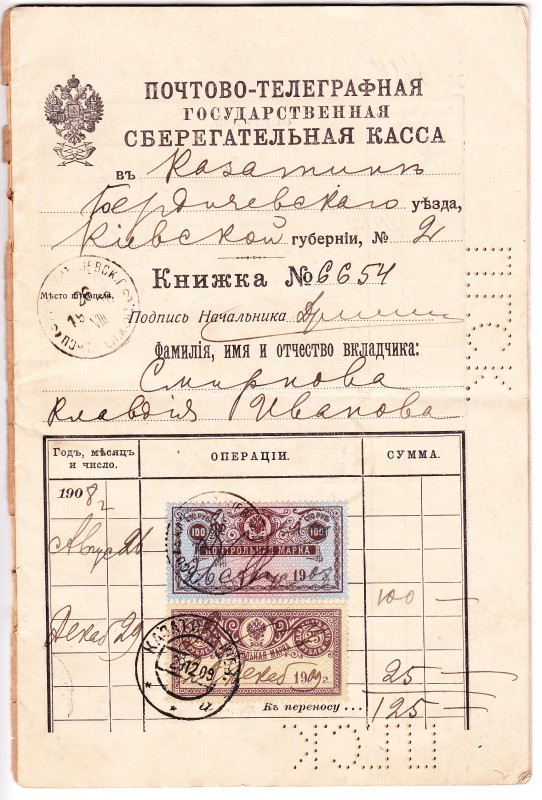 ПОЧТОВО-ТЕЛЕГРАФНАЯ
ГОСУДАРСТВЕННАЯ
СБЕРЕГАТЕЛЬНАЯ КАССА
въ Казатинѣ
Бердичевскаго уѣзда,
Кіевской губерніи, № 2
Книжка № 6654
Мѣсто штемпеля.
Подпись Начальника
Фамилія, имя и отчество вкладчика:
Смирнова
Клавдія Иванова
Годъ, мѣсяцъ и число. ОПЕРАЦІИ. СУММА.
1908 г.
Август 26
100 100
КОНТРОЛЬНАЯ МАРКА
1908
100 —
Декаб 29
25
КОНТРОЛЬНАЯ МАРКА
Декаб 1909 г.
КАЗАТИНЪ
29 12 09
а
25 —
Къ переносу ... 125 —
П.Т.С.К
П.Т.С.К